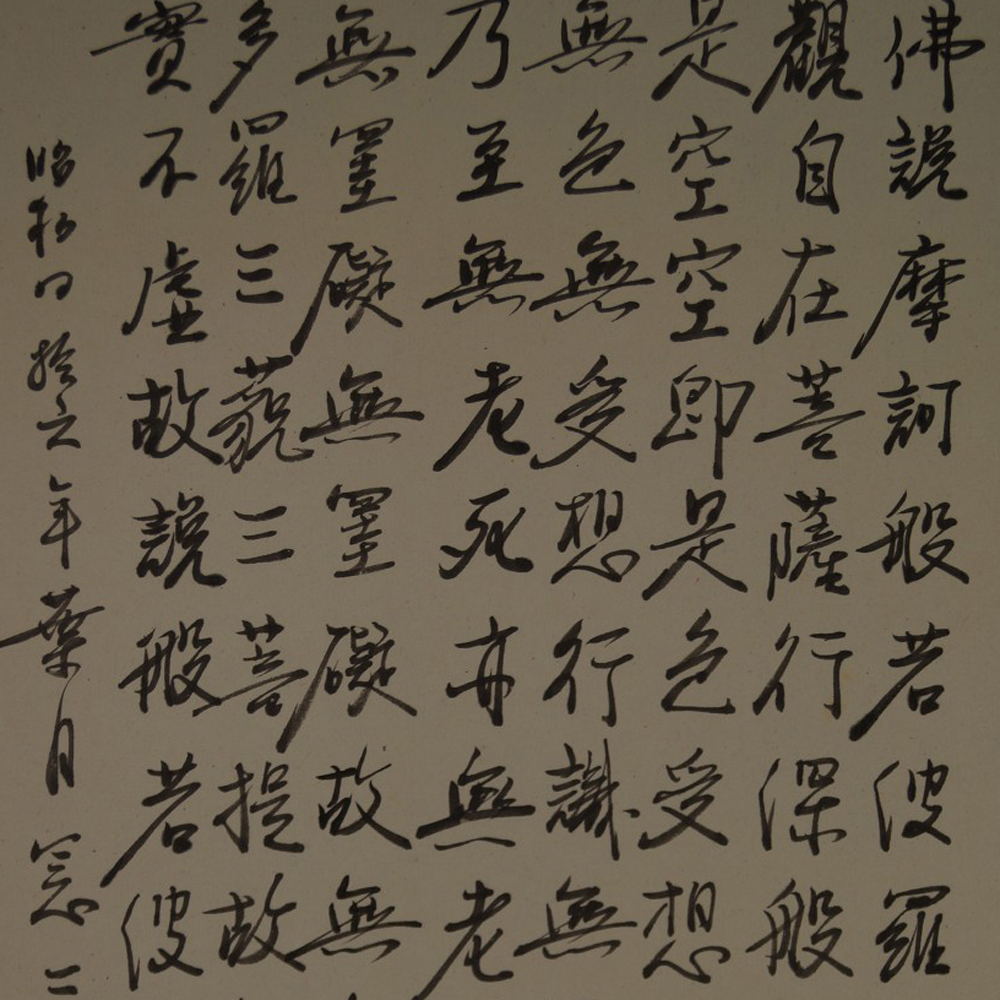 佛說摩訶般若波羅
觀自在菩薩行深般
是空空即是色受想
無色無受想行識無
乃至無老死亦無老
無罣礙無罣礙故無
多羅三藐三菩提故
實不虛故說般若波
昭和 拾六年葉月